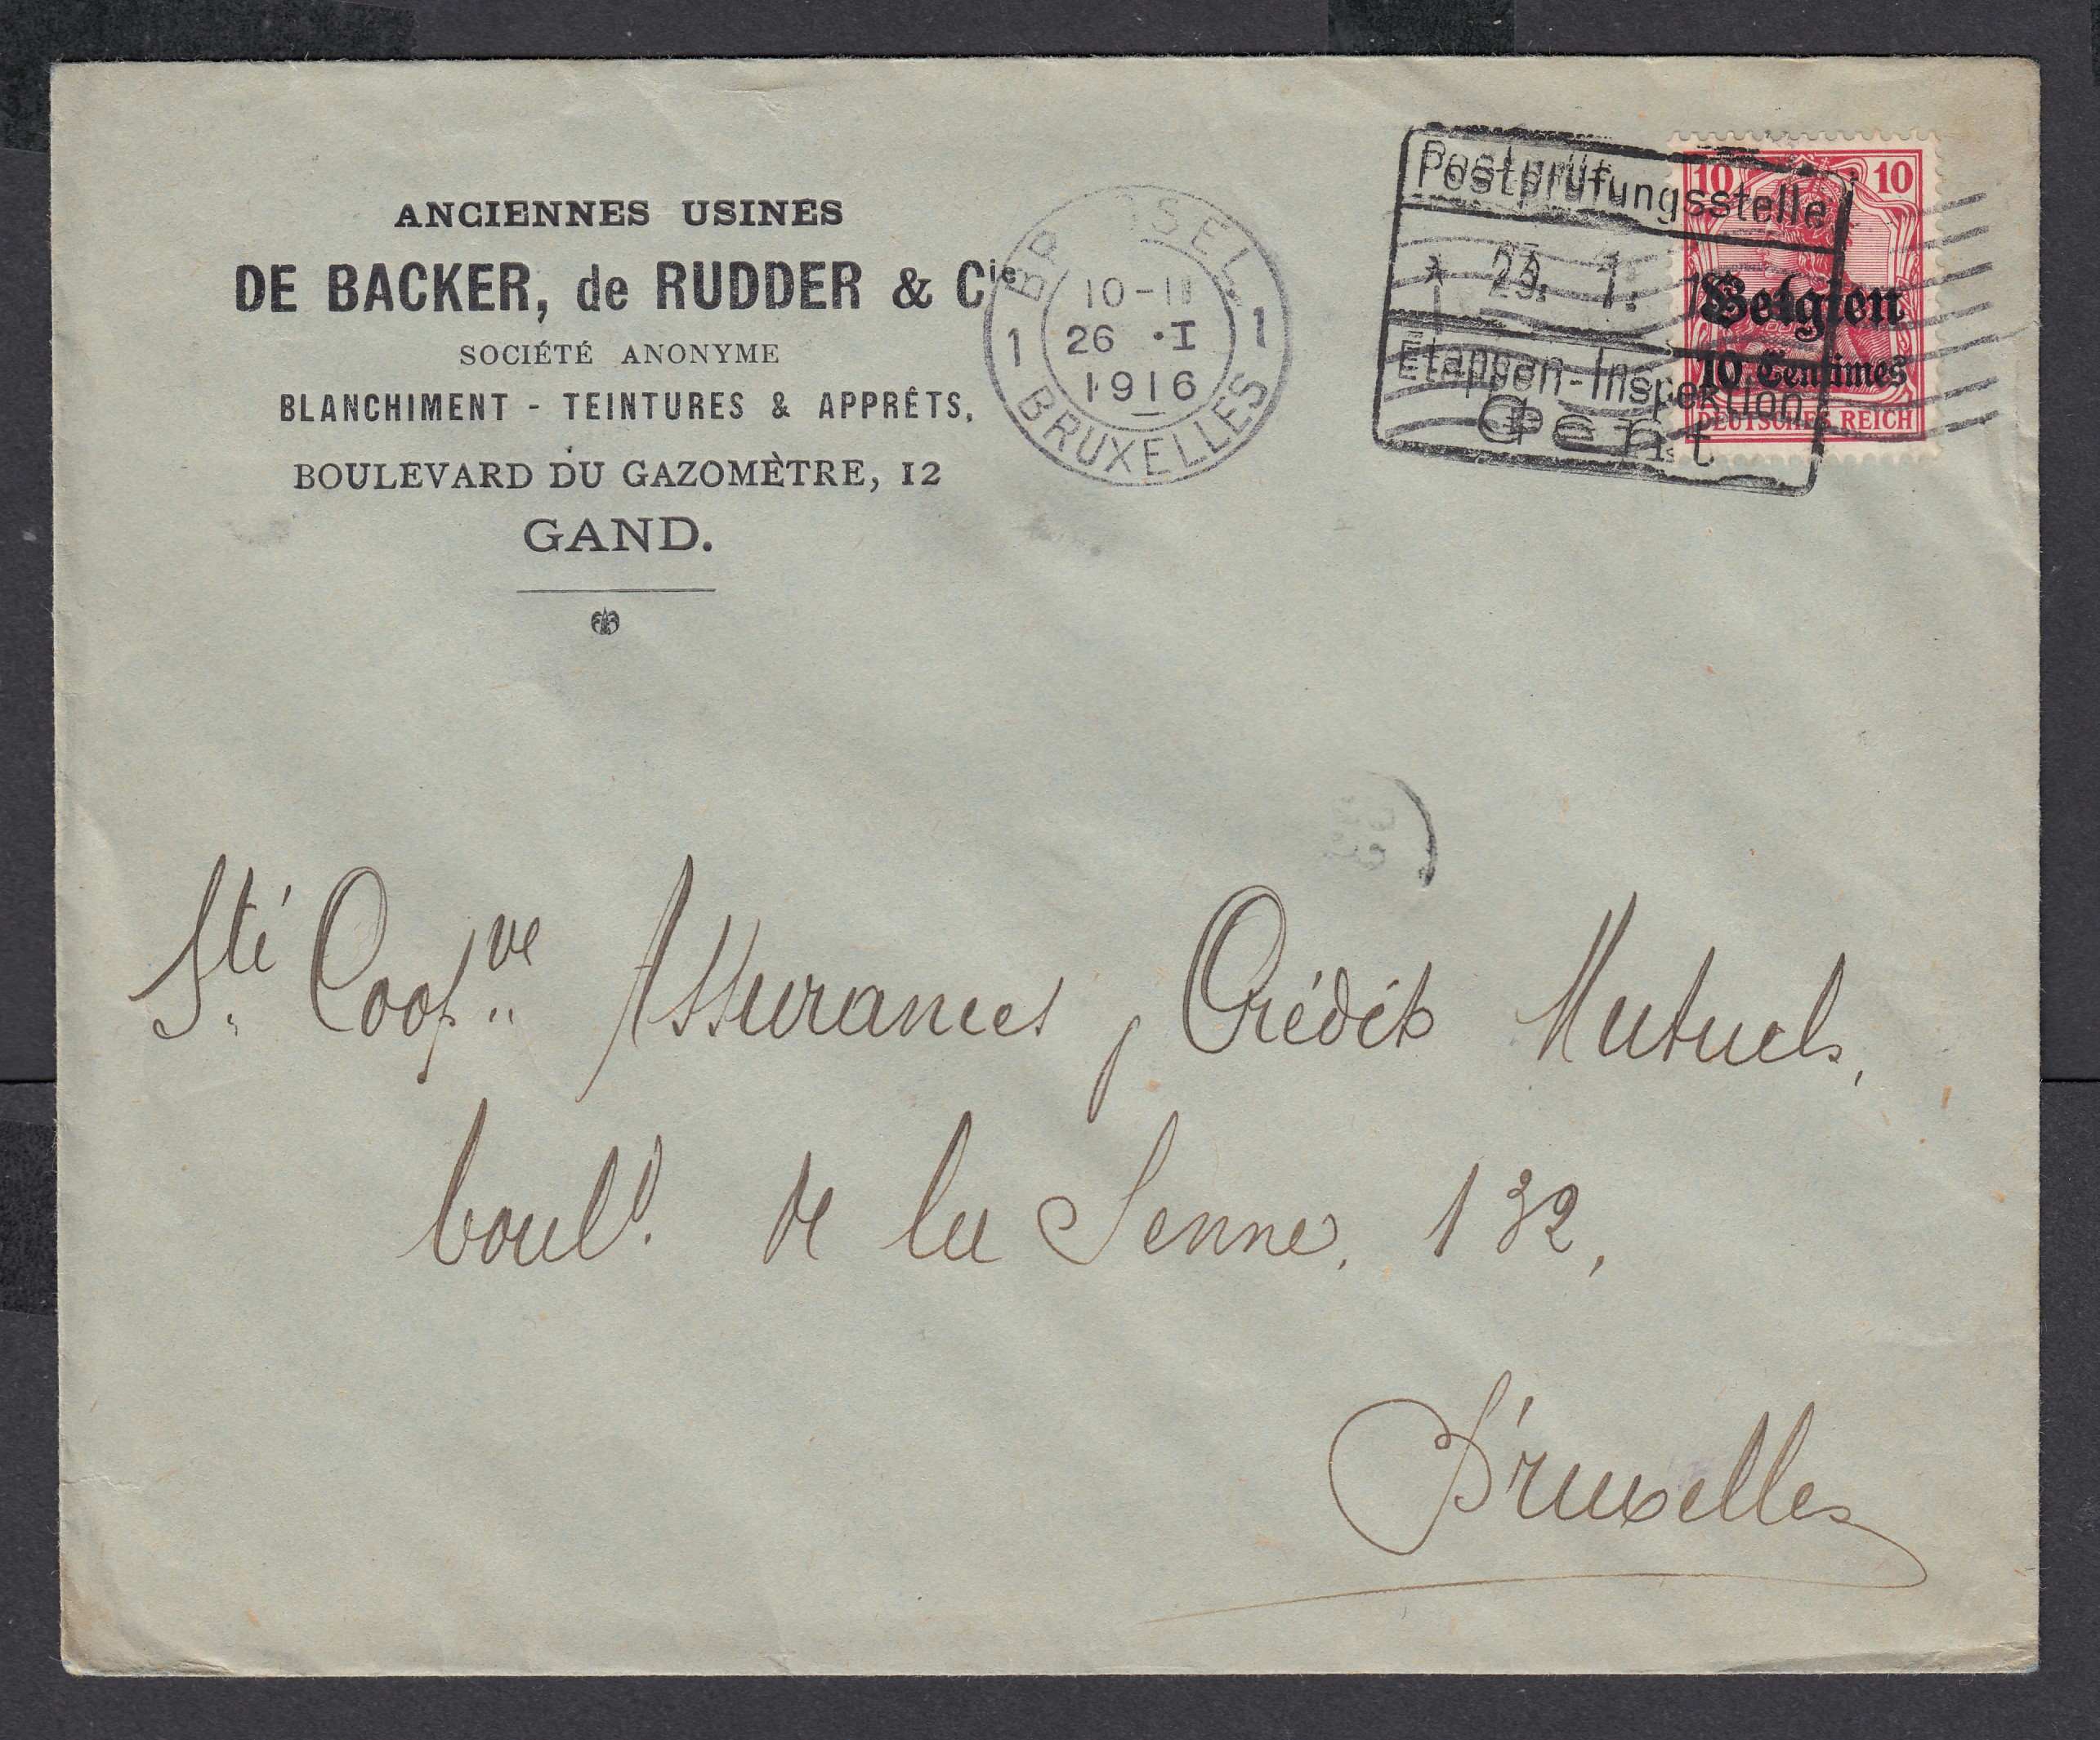 ANCIENNES USINES
DE BACKER, de RUDDER & Cie
SOCIÉTÉ ANONYME
BLANCHIMENT - TEINTURES & APPRÊTS,
BOULEVARD DU GAZOMÈTRE, 12
GAND.
1 1
10-11
26 ·I
1916
BRUXELLES
Postprüfungsstelle
1.
Etappen-Inspektion
Gent
10 10
Belgien
10 Centimes
DEUTSCHES REICH
Sté Coopve Assurances, Crédit Mutuels,
bould. de la Senne. 132,
Bruxelles